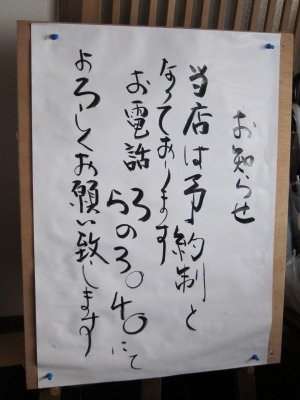 お知らせ
当店は予約制と
なっております
お電話35の3040にて
よろしくお願い致します